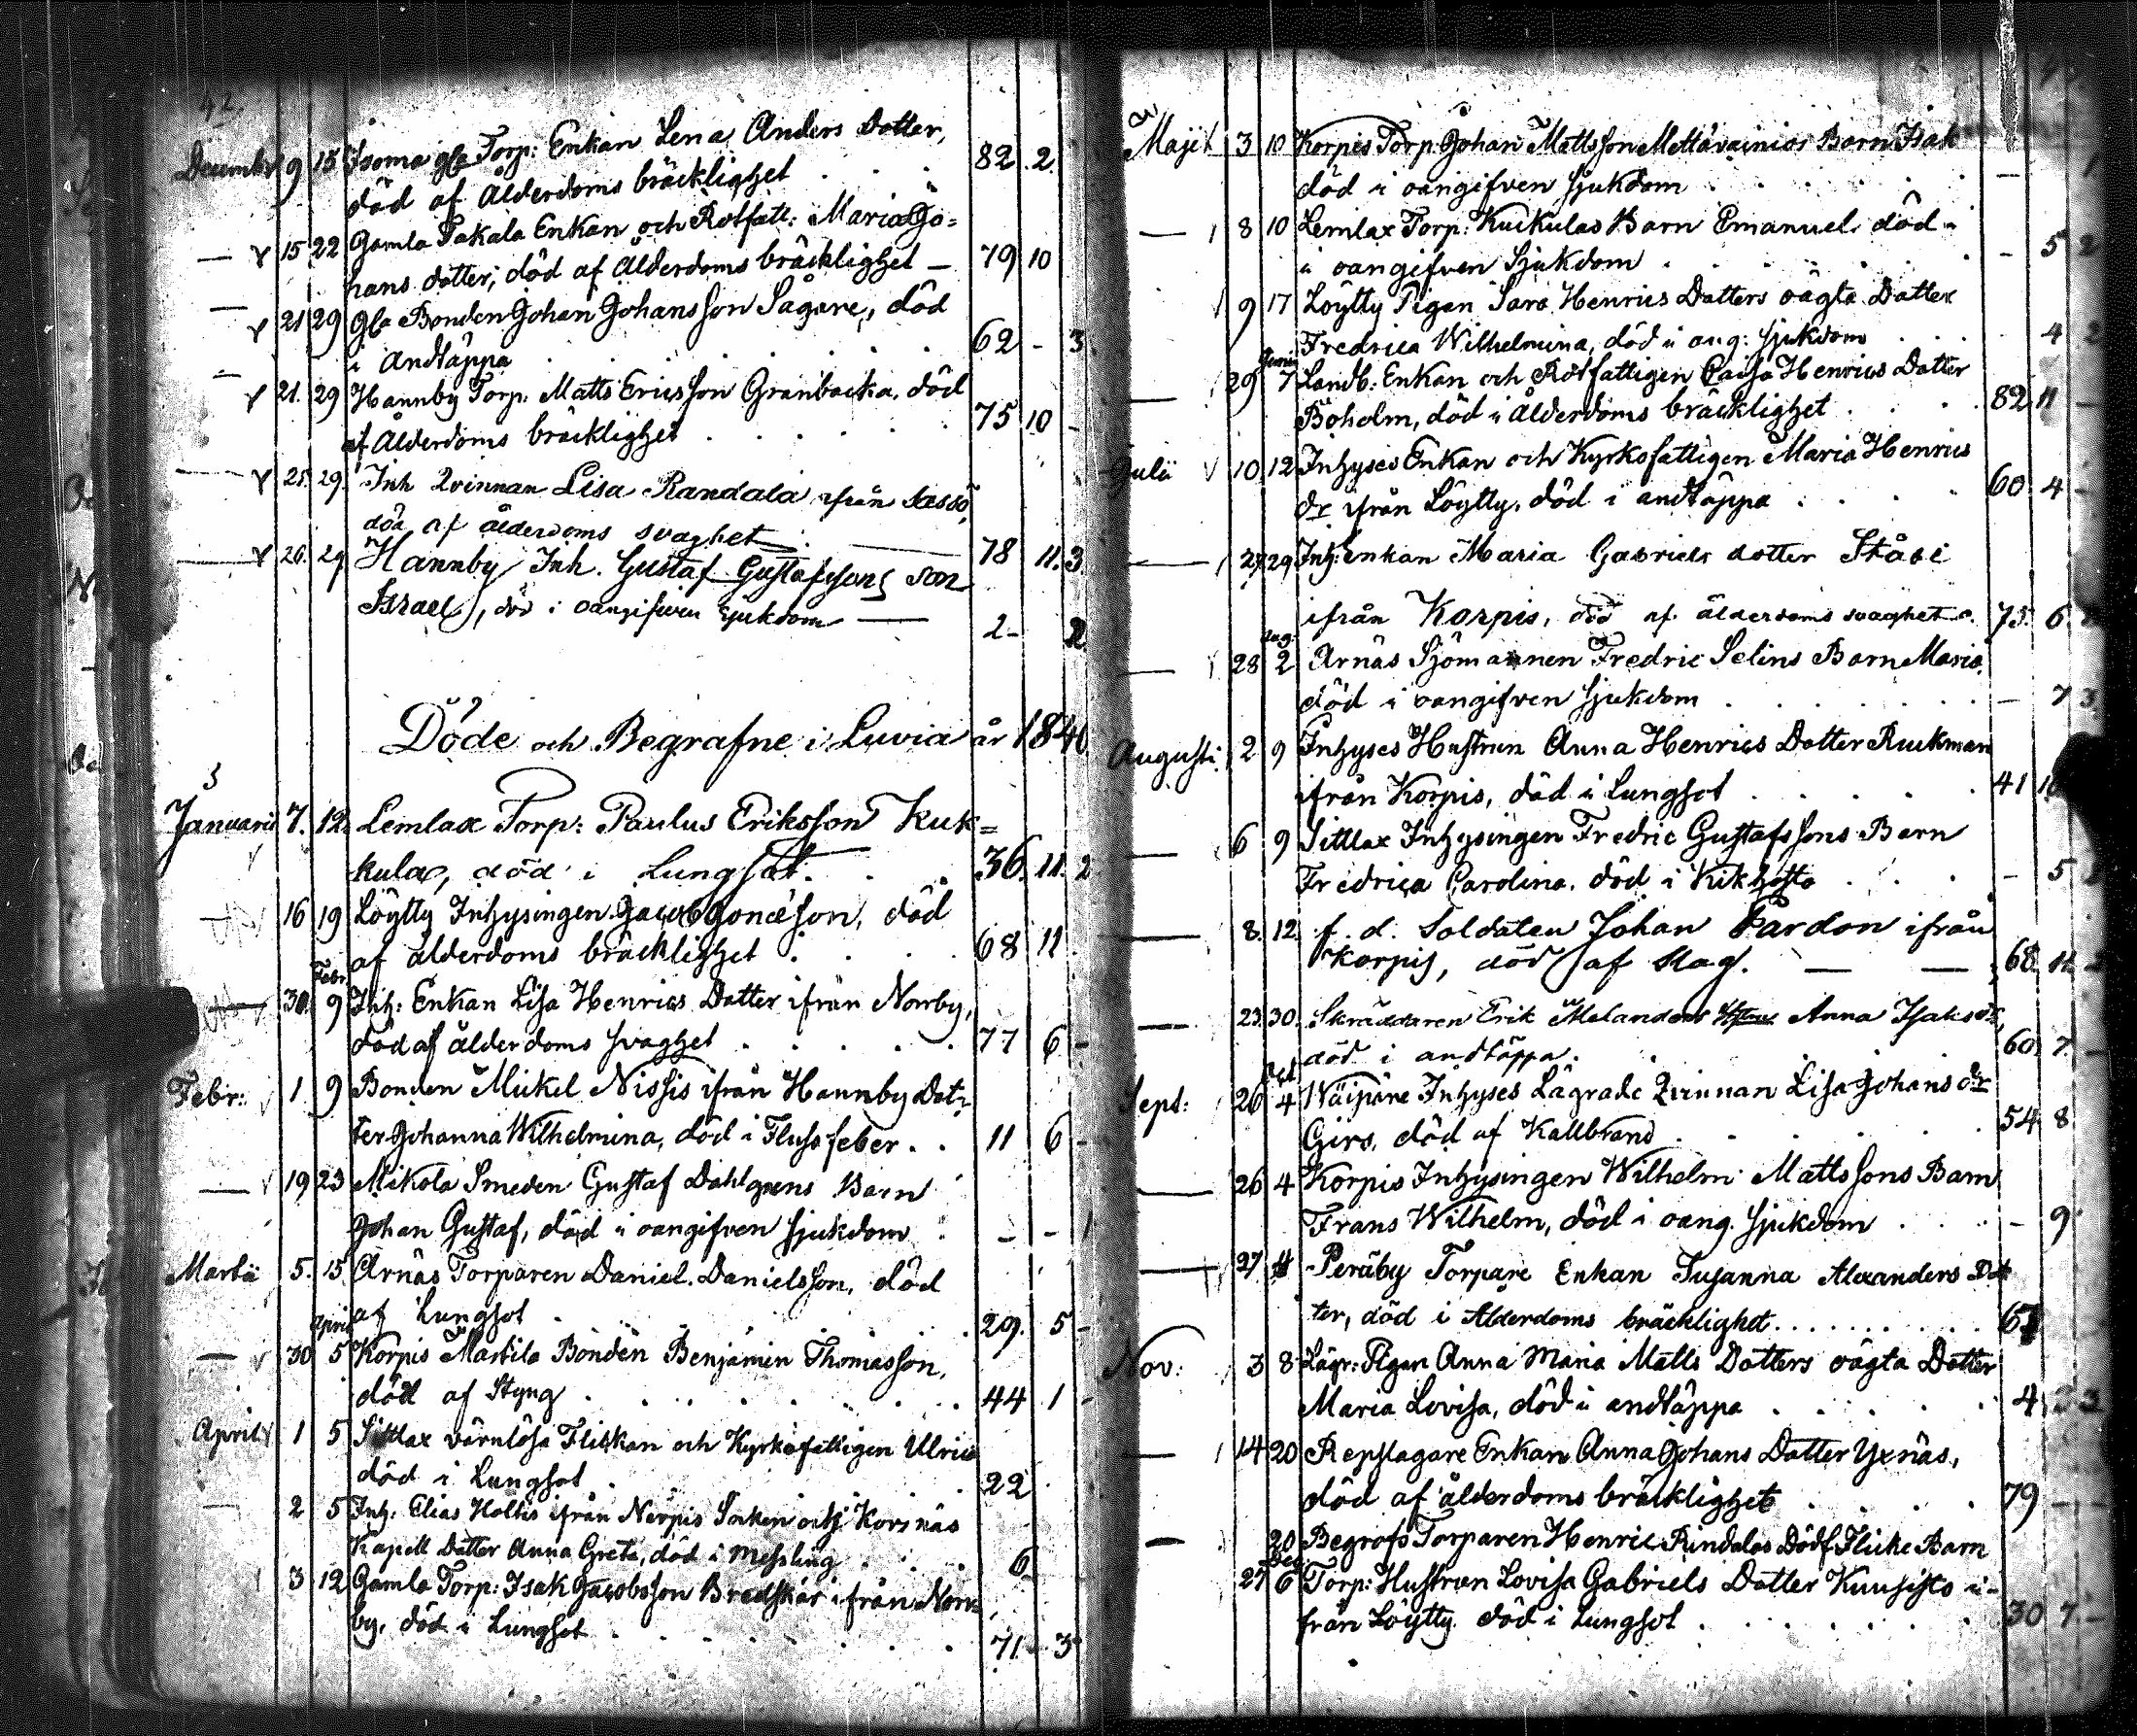 42.
December 9 15 Isoma gla Torp: Enkan Lena Anders Dotter,
död af Ålderdoms bräcklighet . . . 82 2
— 15 22 Gamla Pakala Enkan och Rotfatt: Maria Jo=
hans dotter, död af Ålderdoms bräcklighet — 79 10
— 21 29 Gla Bonden Johan Johansson Sågare, död
i Andtäppa . . . 62 - 3
— 21. 29 Hannby Torp. Matts Ericsson Granbacka, död
af Ålderdoms bräcklighet . . . 75 10 -
— 25. 29. Inh Qvinnan Lisa Randala ifrån Sassö,
död af ålderdoms svaghet. — 78 11. 3
— 26. 29 Hannby Inh. Gustaf Gustafssons son
Israel, död i oangifven sjukdom — 2 - 2
Döde och Begrafne i Luvia år 1840
Januarii 7. 12. Lemlax Torp: Paulus Eriksson Kuk=
kula, död i Lungsot. . . 36. 11. 2
16 19 Löytty Inhysingen Jacob Jonæson, död
af ålderdoms bräcklighet . . . 68 11
— 30 Febr. 9 Inh: Enkan Lisa Henrics Dotter ifrån Norrby,
död af ålderdoms svaghet . . . 77 6 -
Febr: 1 9 Bonden Mickel Nissis ifrån Hannby Dot=
ter Johanna Wilhelmina, död i Flussfeber . . 11 6 -
— 19 23 Mikola Smeden Gustaf Dahlgrens Barn
Johan Gustaf, död i oangifven sjukdom . - - 1
Martii 5. 15 Arnäs Torparen Daniel Danielsson, död
af Lungsot . . . 29. 5 -
— 30 April 5 Korpis Martila Bonden Benjamin Thomasson,
död af Styng . . . 44 1 -
April 1 5 Sittlax värnlösa Flickan och Kyrkofattigen Ulrica
död i Lungsot . . . 22
— 2 5 Inh: Elias Holtis ifrån Nerpis Socken och Korsnäs
Kapell Dotter Anna Greta, död i Messling . . . 6
3 12 Gamla Torp: Isak Jacobsson Bredskär ifrån Norr=
by, död i Lungsot . . . 71. - 3
Maji 3 10 Korpis Torp. Johan Mattsson Mettävainios Barn Isak
död i oangifven sjukdom . . . - 1
— 8 10 Lemlax Torp: Kuckulas Barn Emanuel, död
i oangifven Sjukdom . . . - 5 2
9 17 Löytty Pigan Sara Henrics Dotters oägta Dotter
Fredrica Wilhelmina, död i ang: sjukdom . . . 4 2
— 29 Junii 7 Landb: Enkan och Rotfattigen Caisa Henrics Dotter
Böholm, död i ålderdoms bräcklighet . . . 82 11 -
Julii 10 12 Inhyses Enkan och Kyrkofattigen Maria Henrics
dr ifrån Löytty, död i andtäppa . . . 60 4 -
— 27 29 Inh: Enkan Maria Gabriels dotter Ståbi
ifrån Korpis, död af ålderdoms svaghet. 75. 6
— 28 Aug. 2 Arnäs Sjömannen Fredric Selins Barn Maria,
död i oangifven sjukdom . . . - 7 3
Augusti 2 9 Inhyses Hustrun Anna Henrics Dotter Ruckman
ifrån Korpis, död i Lungsot . . . 41 10
— 6 9 Sittlax Inhysingen Fredric Gustafssons Barn
Fredrica Carolina, död i Kikhosta . . . - 5
— 8. 12. f. d. Soldaten Johan Pardon ifrån
Korpis, död af slag. — — 68 11. -
— 23. 30. Skräddaren Erik Melanders Anna Isaksdr,
död i andtäppa. 60. 7. -
Sept: 26 Oct 4 Wäipäre Inhyses Lägrade Qvinnan Lisa Johans dr
Girs, död af Kallbrand . . . 54 8
— 26 4 Korpis Inhysingen Wilhelm Mattssons Barn
Frans Wilhelm, död i oang. sjukdom . . . - 9
— 27 4 Peräby Torpare Enkan Susanna Alexanders Dot
ter, död i Alderdoms bräcklighet. . . .
Nov: 3 8 Lägr: Pigan Anna Maria Matts Dotters oägta Dotter
Maria Lovisa, död i andtäppa . . . 4 3
— 14 20 Repslagare Enkan Anna Johans Dotter Yxnäs,
död af ålderdoms bräcklighet . . . 79 - -
— 20 Begrofs Torparen Henric Rindalas Dödf. Flicke Barn
27 Dec 6 Torp: Hustrun Lovisa Gabriels Dotter Kuusisto i-
från Löytty, död i Lungsot . . . 30 7 -